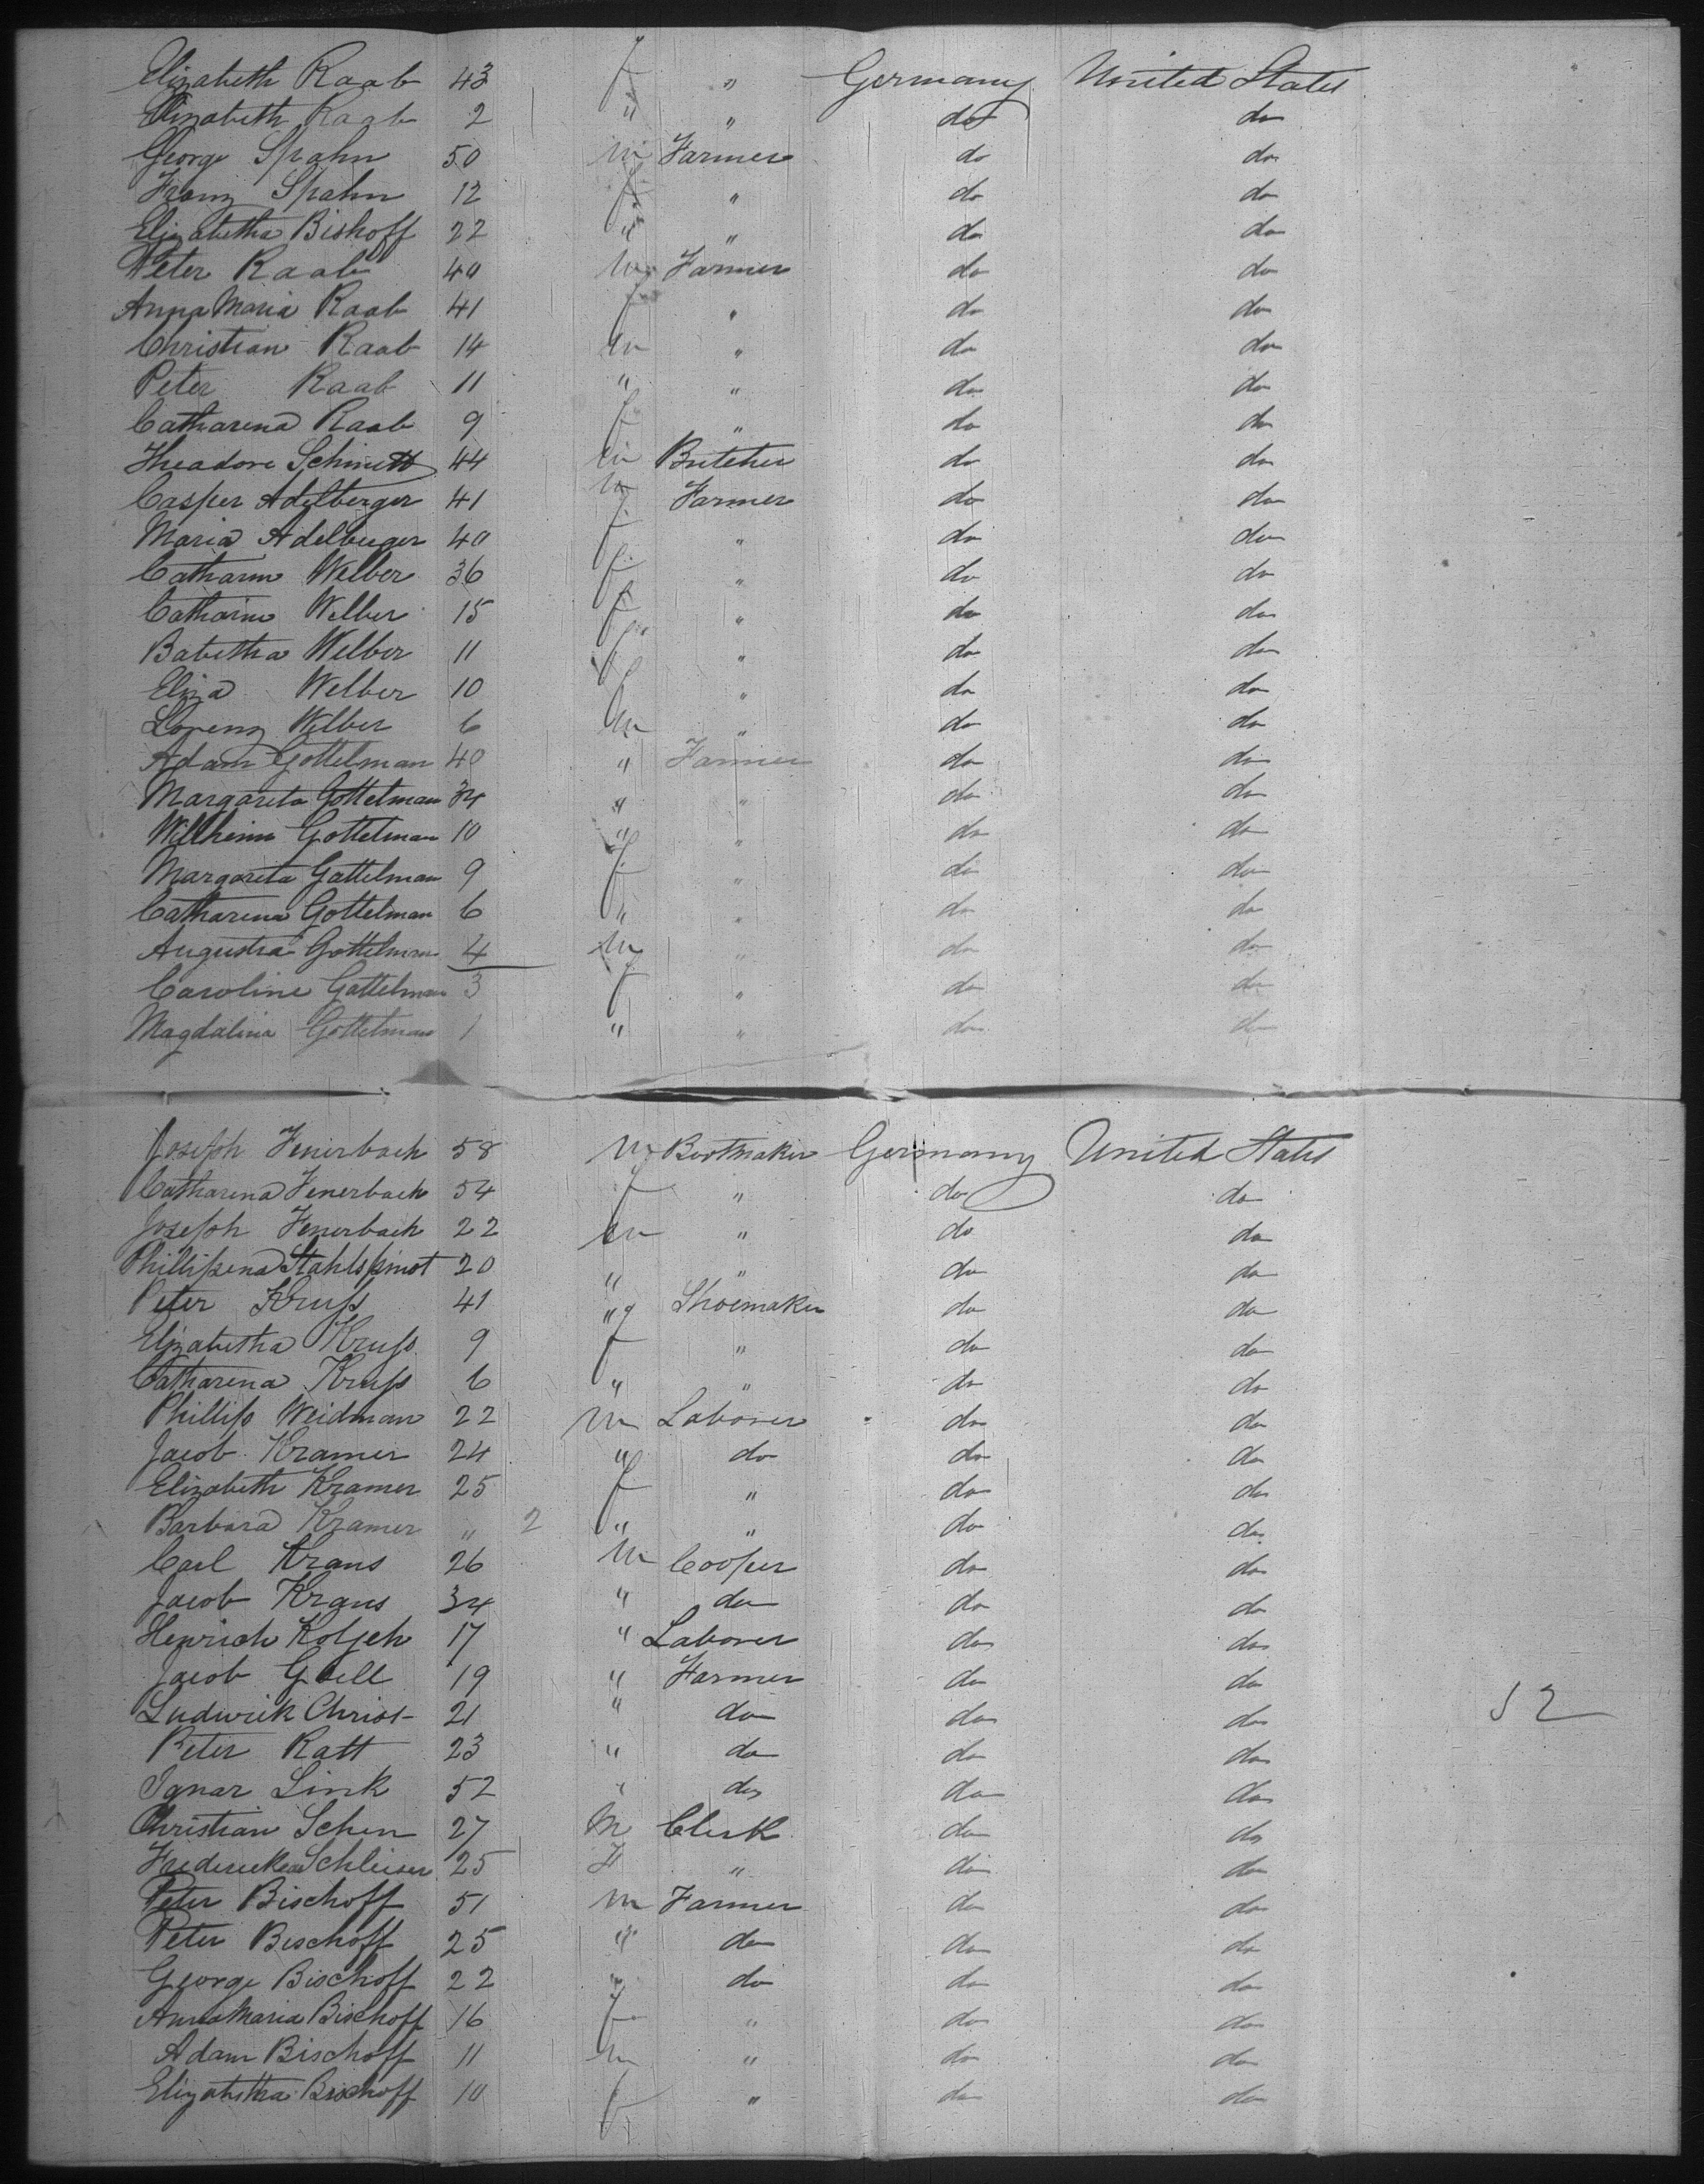 Elizabeth Raab 43 f " Germany United States
Elizabeth Raab 2 " " do do
George Spahn 50 m Farmer do do
Franz Spahn 12 f " do do
Elizabetha Bishoff 22 " " do do
Peter Raab 40 m Farmer do do
Anna Maria Raab 41 f " do do
Christian Raab 14 m " do do
Peter Raab 11 " " do do
Catharena Raab 9 f " do do
Theadore Schmett 44 m Butcher do do
Casper Adelberger 41 m Farmer do do
Maria Adelberger 40 f " do do
Catharine Welber 36 f " do do
Catharine Welber 15 f " do do
Babettha Welber 11 f " do do
Eliza Welber 10 f " do do
Lorenz Welber 6 m " do do
Adam Gottelman 40 " Farmer do do
Margareta Gottelman 34 " " do do
Willheim Gottelman 10 " " do do
Margareta Gattelman 9 f " do do
Catharena Gottelman 6 " " do do
Augusta Gottelman 4 m " do do
Caroline Gattelman 3 f " do do
Magdalina Gottelman 1 " " do do
Joseph Fenerbach 58 m Bootmaker Germany United States
Catharena Fenerbach 54 f " do do
Joseph Fenerbach 22 m " do do
Phillipena 20 " " do do
Peter Kruss 41 " Shoemaker do do
Elizabetha Kruss 9 f " do do
Catharena Kruss 6 " " do do
Phillip Weidman 22 m Laborer do do
Jacob Kramer 24 " do do do
Elizabeth Kramer 25 f " do do
Barbara Kramer " 2 " " do do
Carl Krans 26 m Cooper do do
Jacob Krans 34 " do do do
Henrich Kolsch 17 " Laborer do do
Jacob Goell 19 " Farmer do do
Ludwick Christ 21 " do do do 52
Peter Ratt 23 " do do do
Ignar Link 52 " do do do
Christian Schen 27 M Clerk do do
Fredericka Schleiser 25 F " do do
Peter Bischoff 51 m Farmer do do
Peter Bischoff 25 " do do do
George Bischoff 22 " do do do
Anna Maria Bischoff 16 f " do do
Adam Bischoff 11 m " do do
Elizabetha Bischoff 10 f " do do